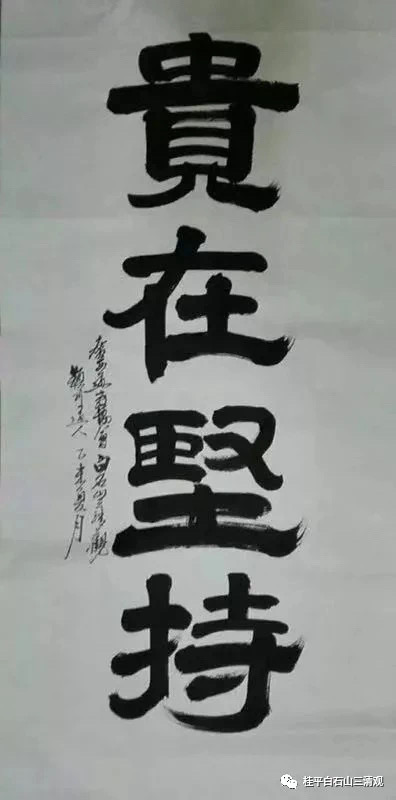 貴在堅持
白石山三清觀
道人 乙未夏月
桂平白石山三清观